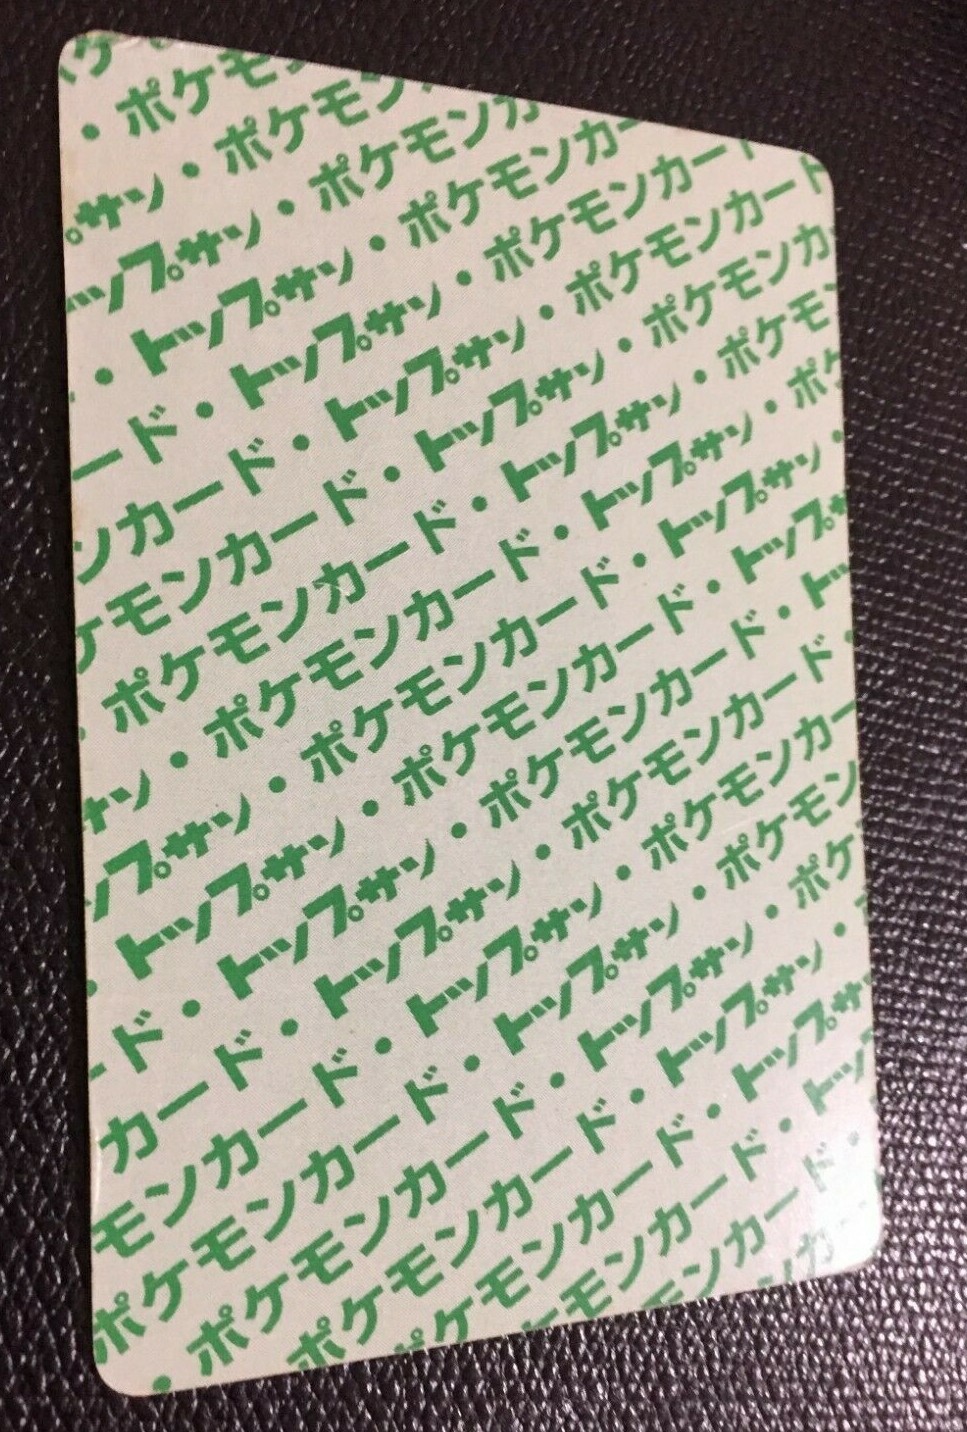 ケ
・ポケモ
プサン・ポケモン
ップサン・ポケモンカ
・トップサン・ポケモンカー
ード・トップサン・ポケモンカー
ンカード・トップサン・ポケモンカード
ケモンカード・トップサン・ポケモンカ
ポケモンカード・トップサン・ポケモ
サン・ポケモンカード・トップサン・ポケ
ップサン・ポケモンカード・トップサン・
トップサン・ポケモンカード・トップサ
ード・トップサン・ポケモンカード・トッ
カード・トップサン・ポケモンカード・
モンカード・トップサン・ポケモンカー
ポケモンカード・トップサン・ポケモン
・ポケモンカード・トップサン・ポケ
ポケモンカード・トップサン・
ポケモンカード・トップサ
ケモンカード・トップ
モンカード・
ンカ